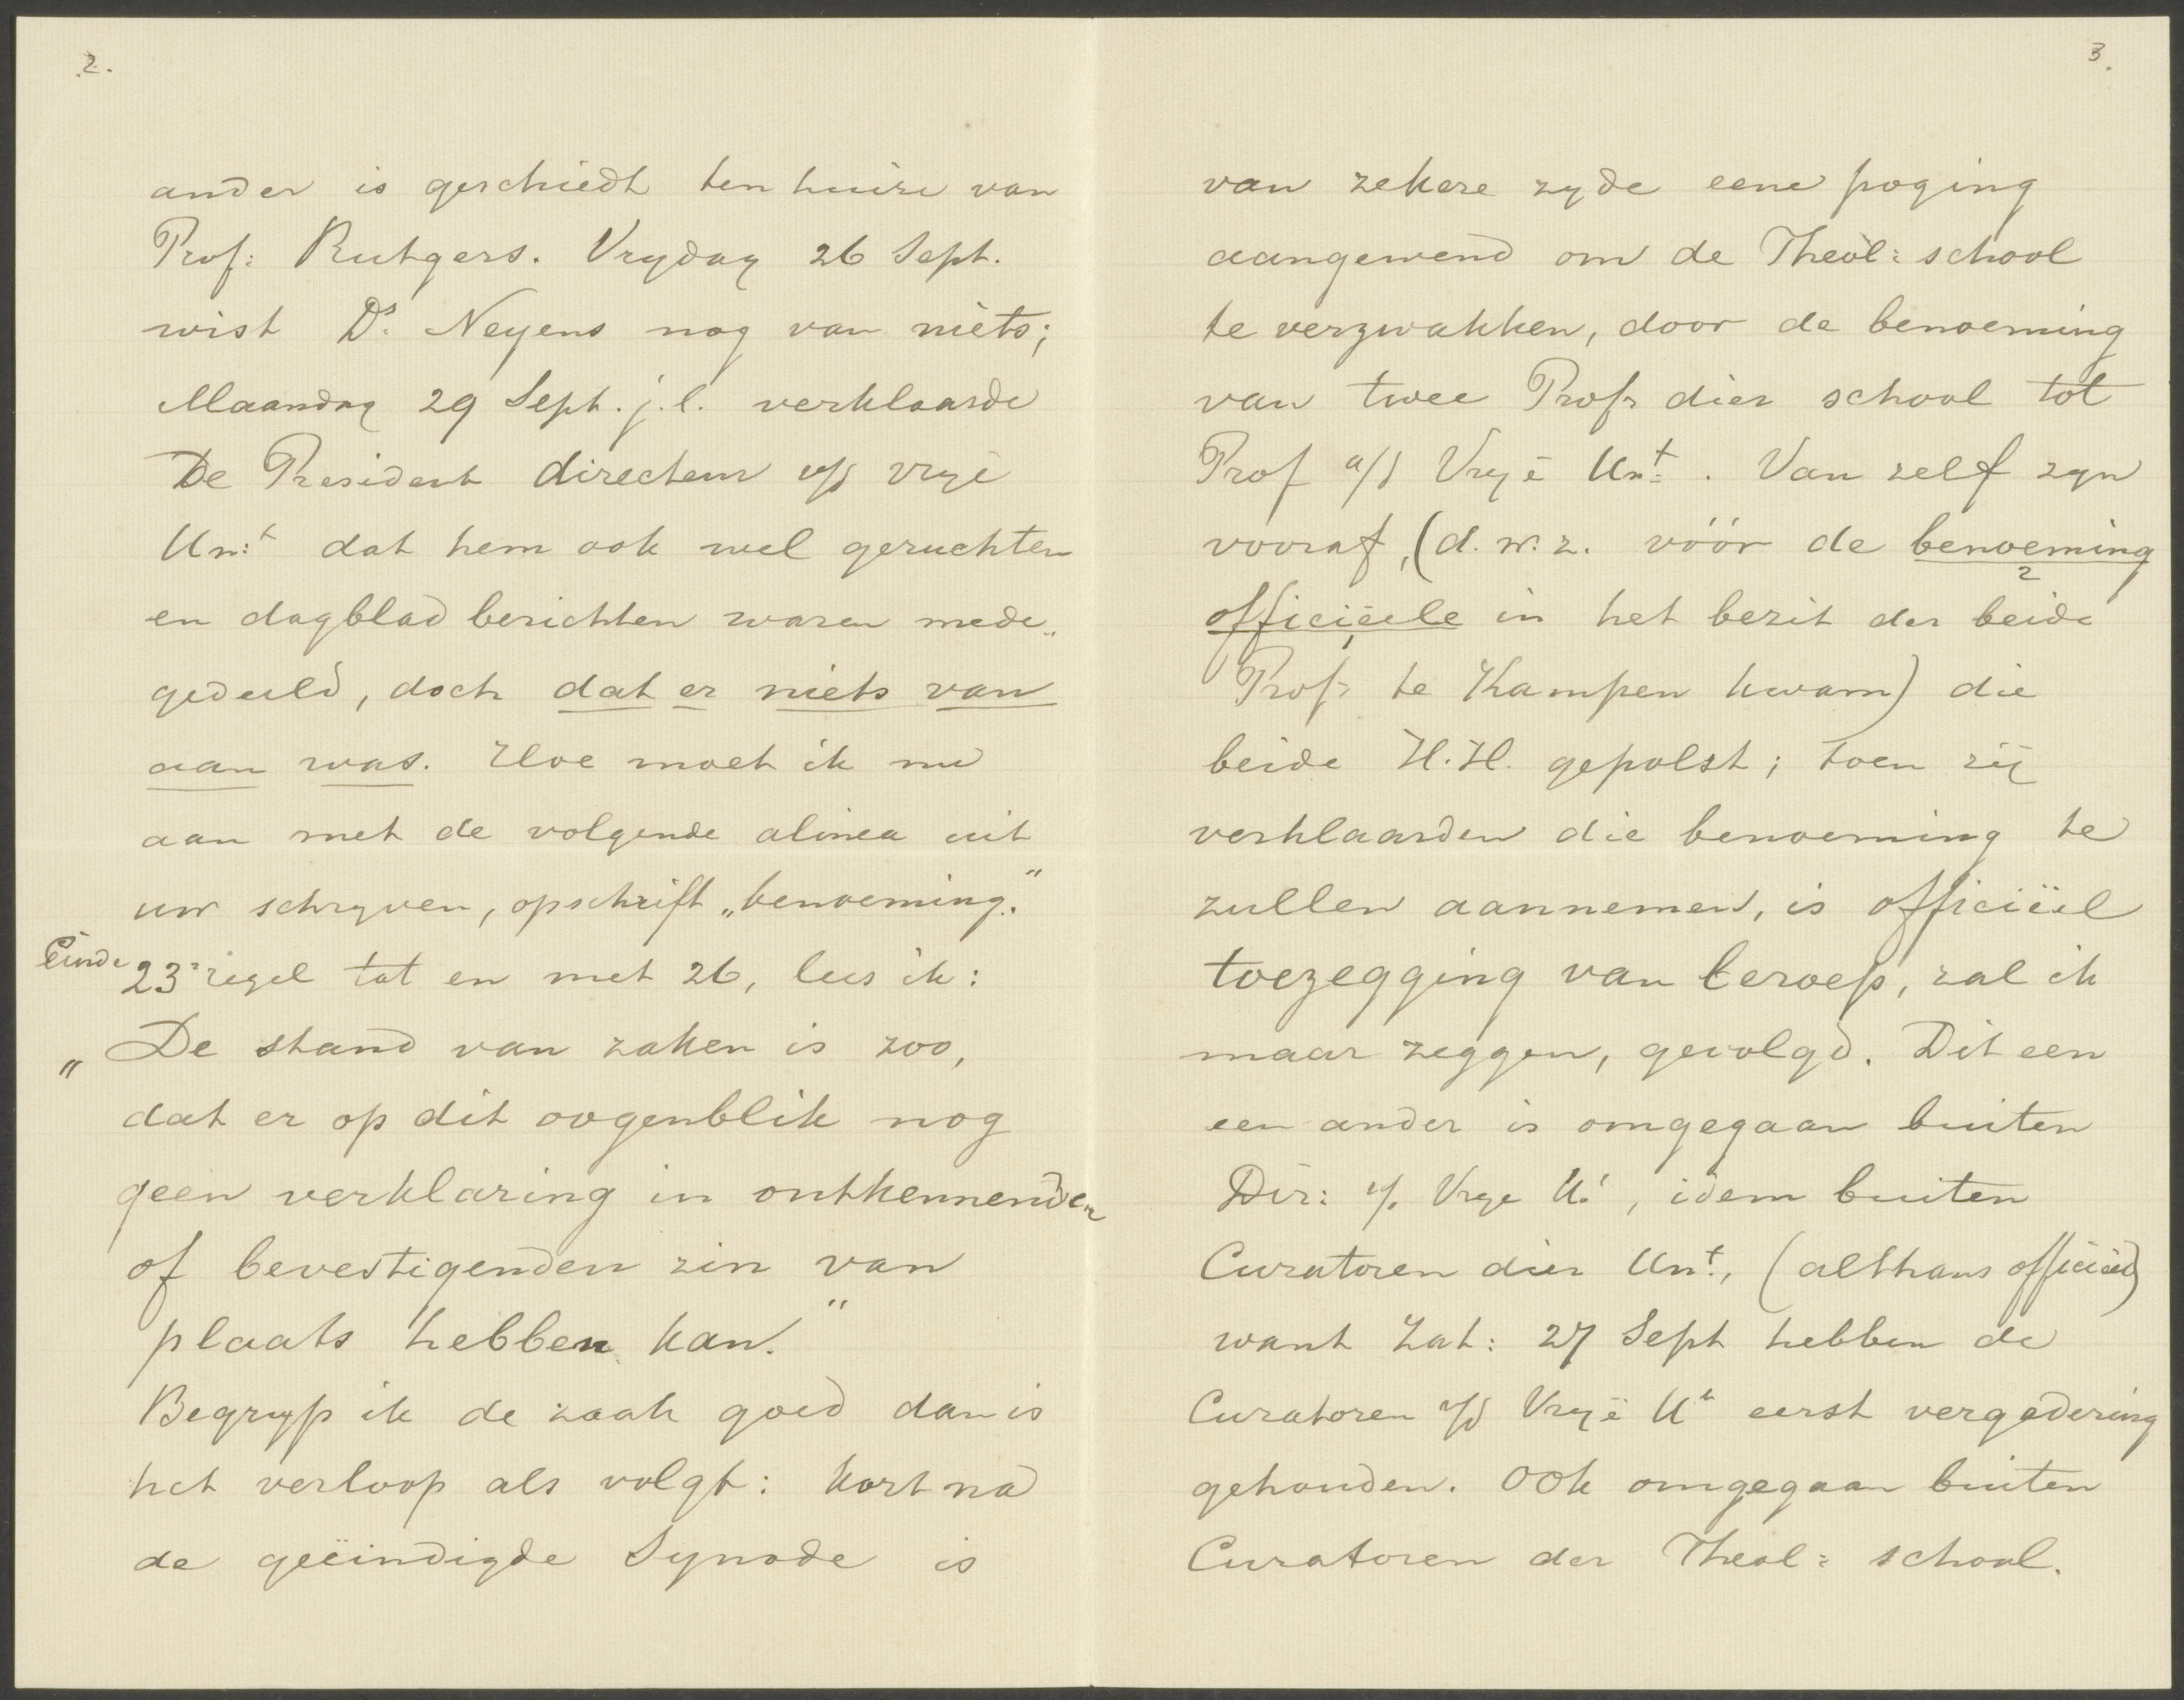 2.
ander is geschiedt ten huize van
Prof: Rutgers. Vrydag 26 Sept.
wist Ds. Neyens nog van niets;
Maandag 29 Sept. j.l. verklaarde
De President directeur v/d vrye
Un:t dat hem ook wel geruchten
en dagblad berichten waren mede„
gedeeld, doch dat er niets van
aan was. Hoe moet ik nu
aan met de volgende alinea uit
uw schryven, opschrift „benoeming."
Einde 23e regel tot en met 26, lees ik:
„De stand van zaken is zoo,
dat er op dit oogenblik nog
geen verklaring in ontkennenden
of bevestigenden zin van
plaats hebben kan."
Begryp ik de zaak goed dan is
het verloop als volgt: kort na
de geëindigde Synode is
3.
van zekere zyde eene poging
aangewend om de Theol: school
te verzwakken, door de benoeming
van twee Profr dier school tot
Prof a/d Vrye Un:t. Van zelf zyn
vooraf, (d.w.z. vóór de benoeming 2
officiëele 1 in het bezit der beide
Profr te Kampen kwam) die
beide H.H. gepolst; toen zij
verklaarden die benoeming te
zullen aannemen, is officiëel
toezegging van beroep, zal ik
maar zeggen, gevolgd. Dit een
een ander is omgegaan buiten
Dir: v/d Vrye U:, idem buiten
Curatoren dier Un:t, (althans officiëel)
want Zat: 27 Sept hebben de
Curatoren v/d Vrye Ut eerst vergadering
gehouden. Ook omgegaan buiten
Curatoren der Theol: school.